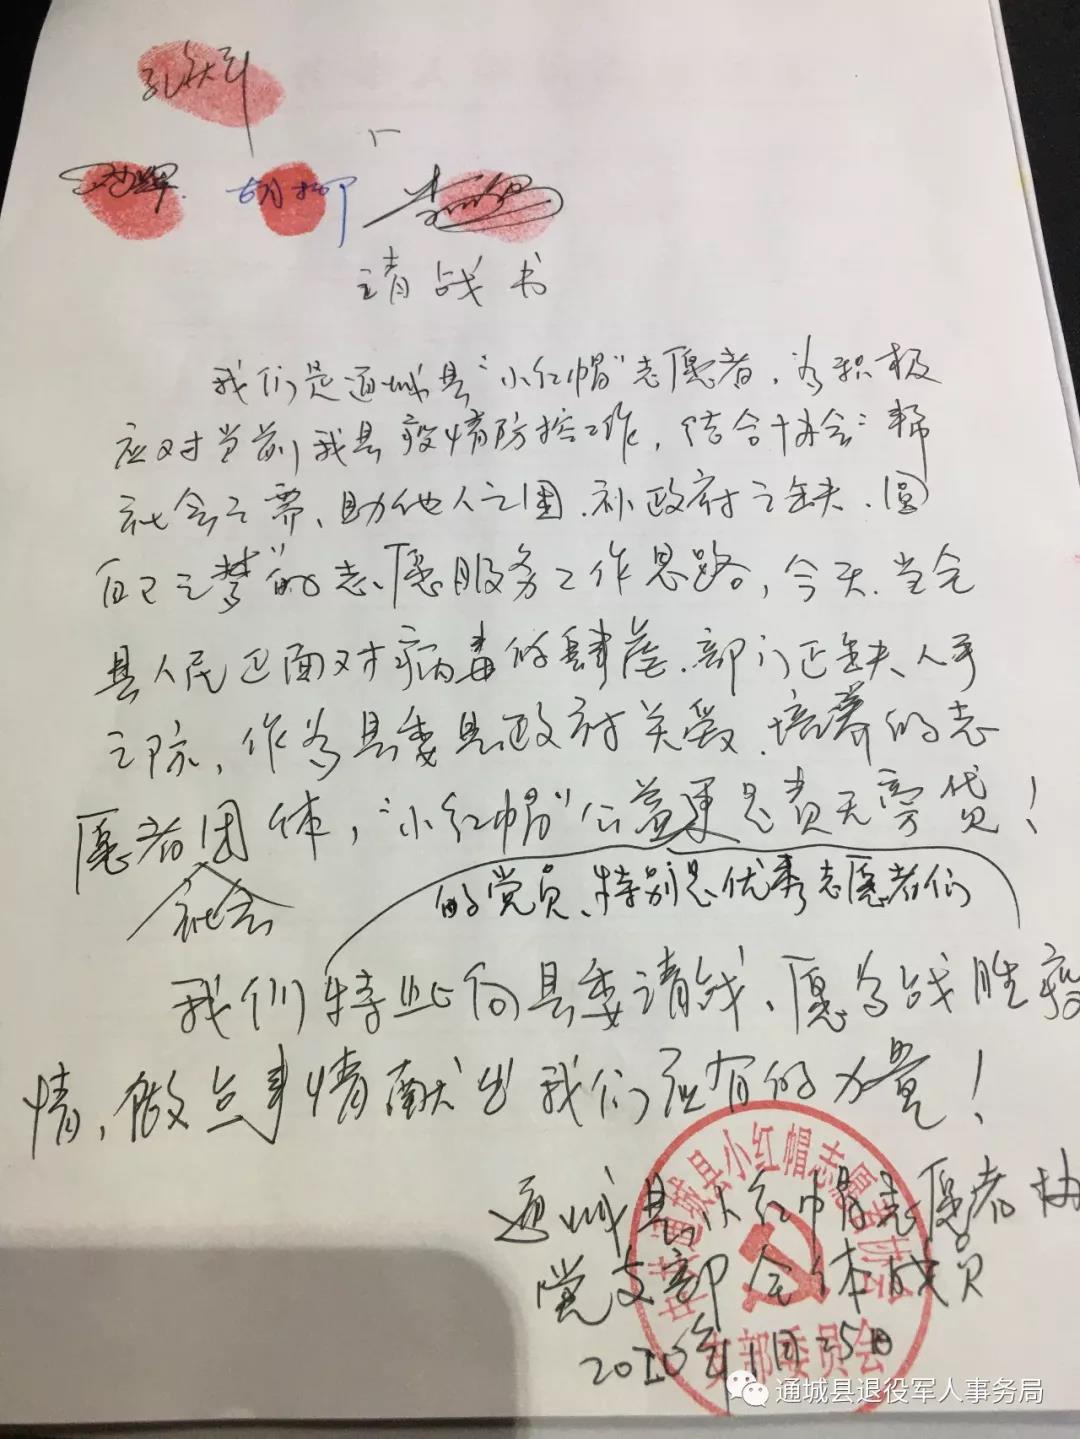 胡柳
请战书
我们是通城县“小红帽”志愿者，为积极
应对当前我县疫情防控工作，结合协会：帮
社会之需、助他人之困、补政府之缺、圆
自己之梦”的志愿服务工作思路，今天，当全
县人民正面对病毒的肆虐、部门正缺人手
之际，作为县委县政府关爱、培养的志
愿者团体，“小红帽”公益更是责无旁贷！
社会
的党员、特别是优秀志愿者们
我们特此向县委请战、愿为战胜疫
情，做点事情献出我们应有的力量！
通城县小红帽志愿者协
党支部全体成员
2020年1月25日
中共通城县小红帽志愿者协会
支部委员会
通城县退役军人事务局